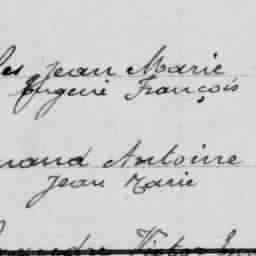 les Jean Marie
Eugène François
rand Antoine
Jean Marie
Victor